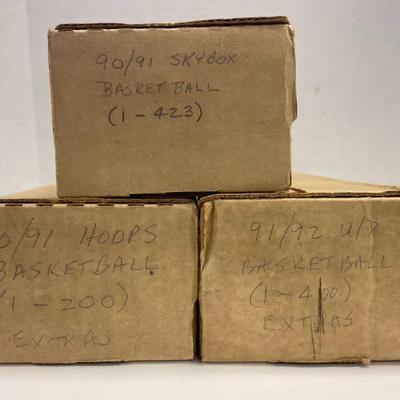 90/91 SKYBOX
BASKETBALL
(1-423)
0/91 HOOPS
BASKETBALL
(1-200)
EXTRAS
91/92 U/D
BASKETBALL
(1-400)
EXTRAS